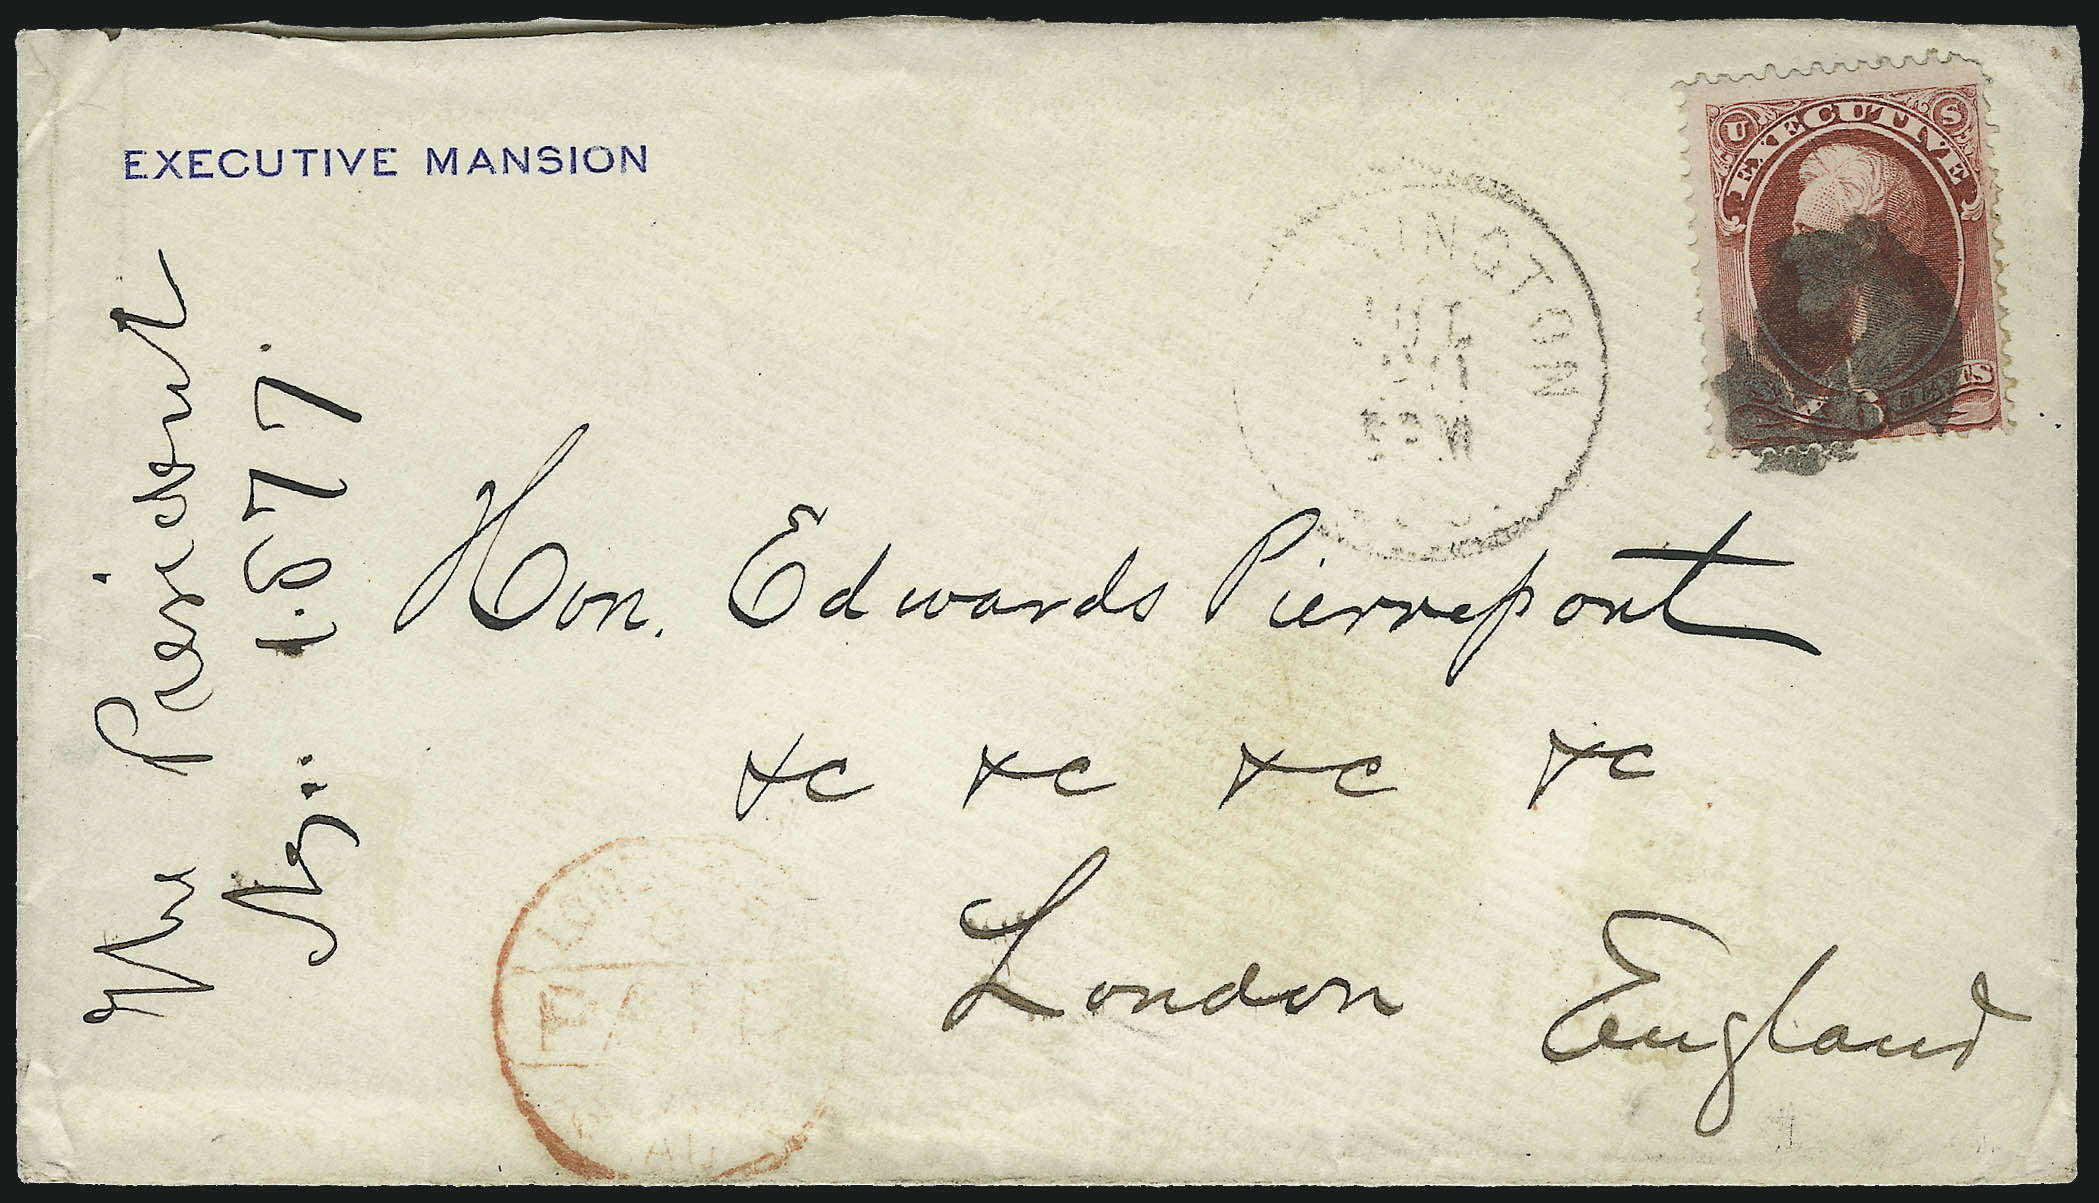 EXECUTIVE MANSION
U S
EXECUTIVE
SIX CENTS
INGTON
JUL
Hon. Edwards Pierrepont
&c &c &c &c
London
England
The President
1877.
LON
PAID
AU